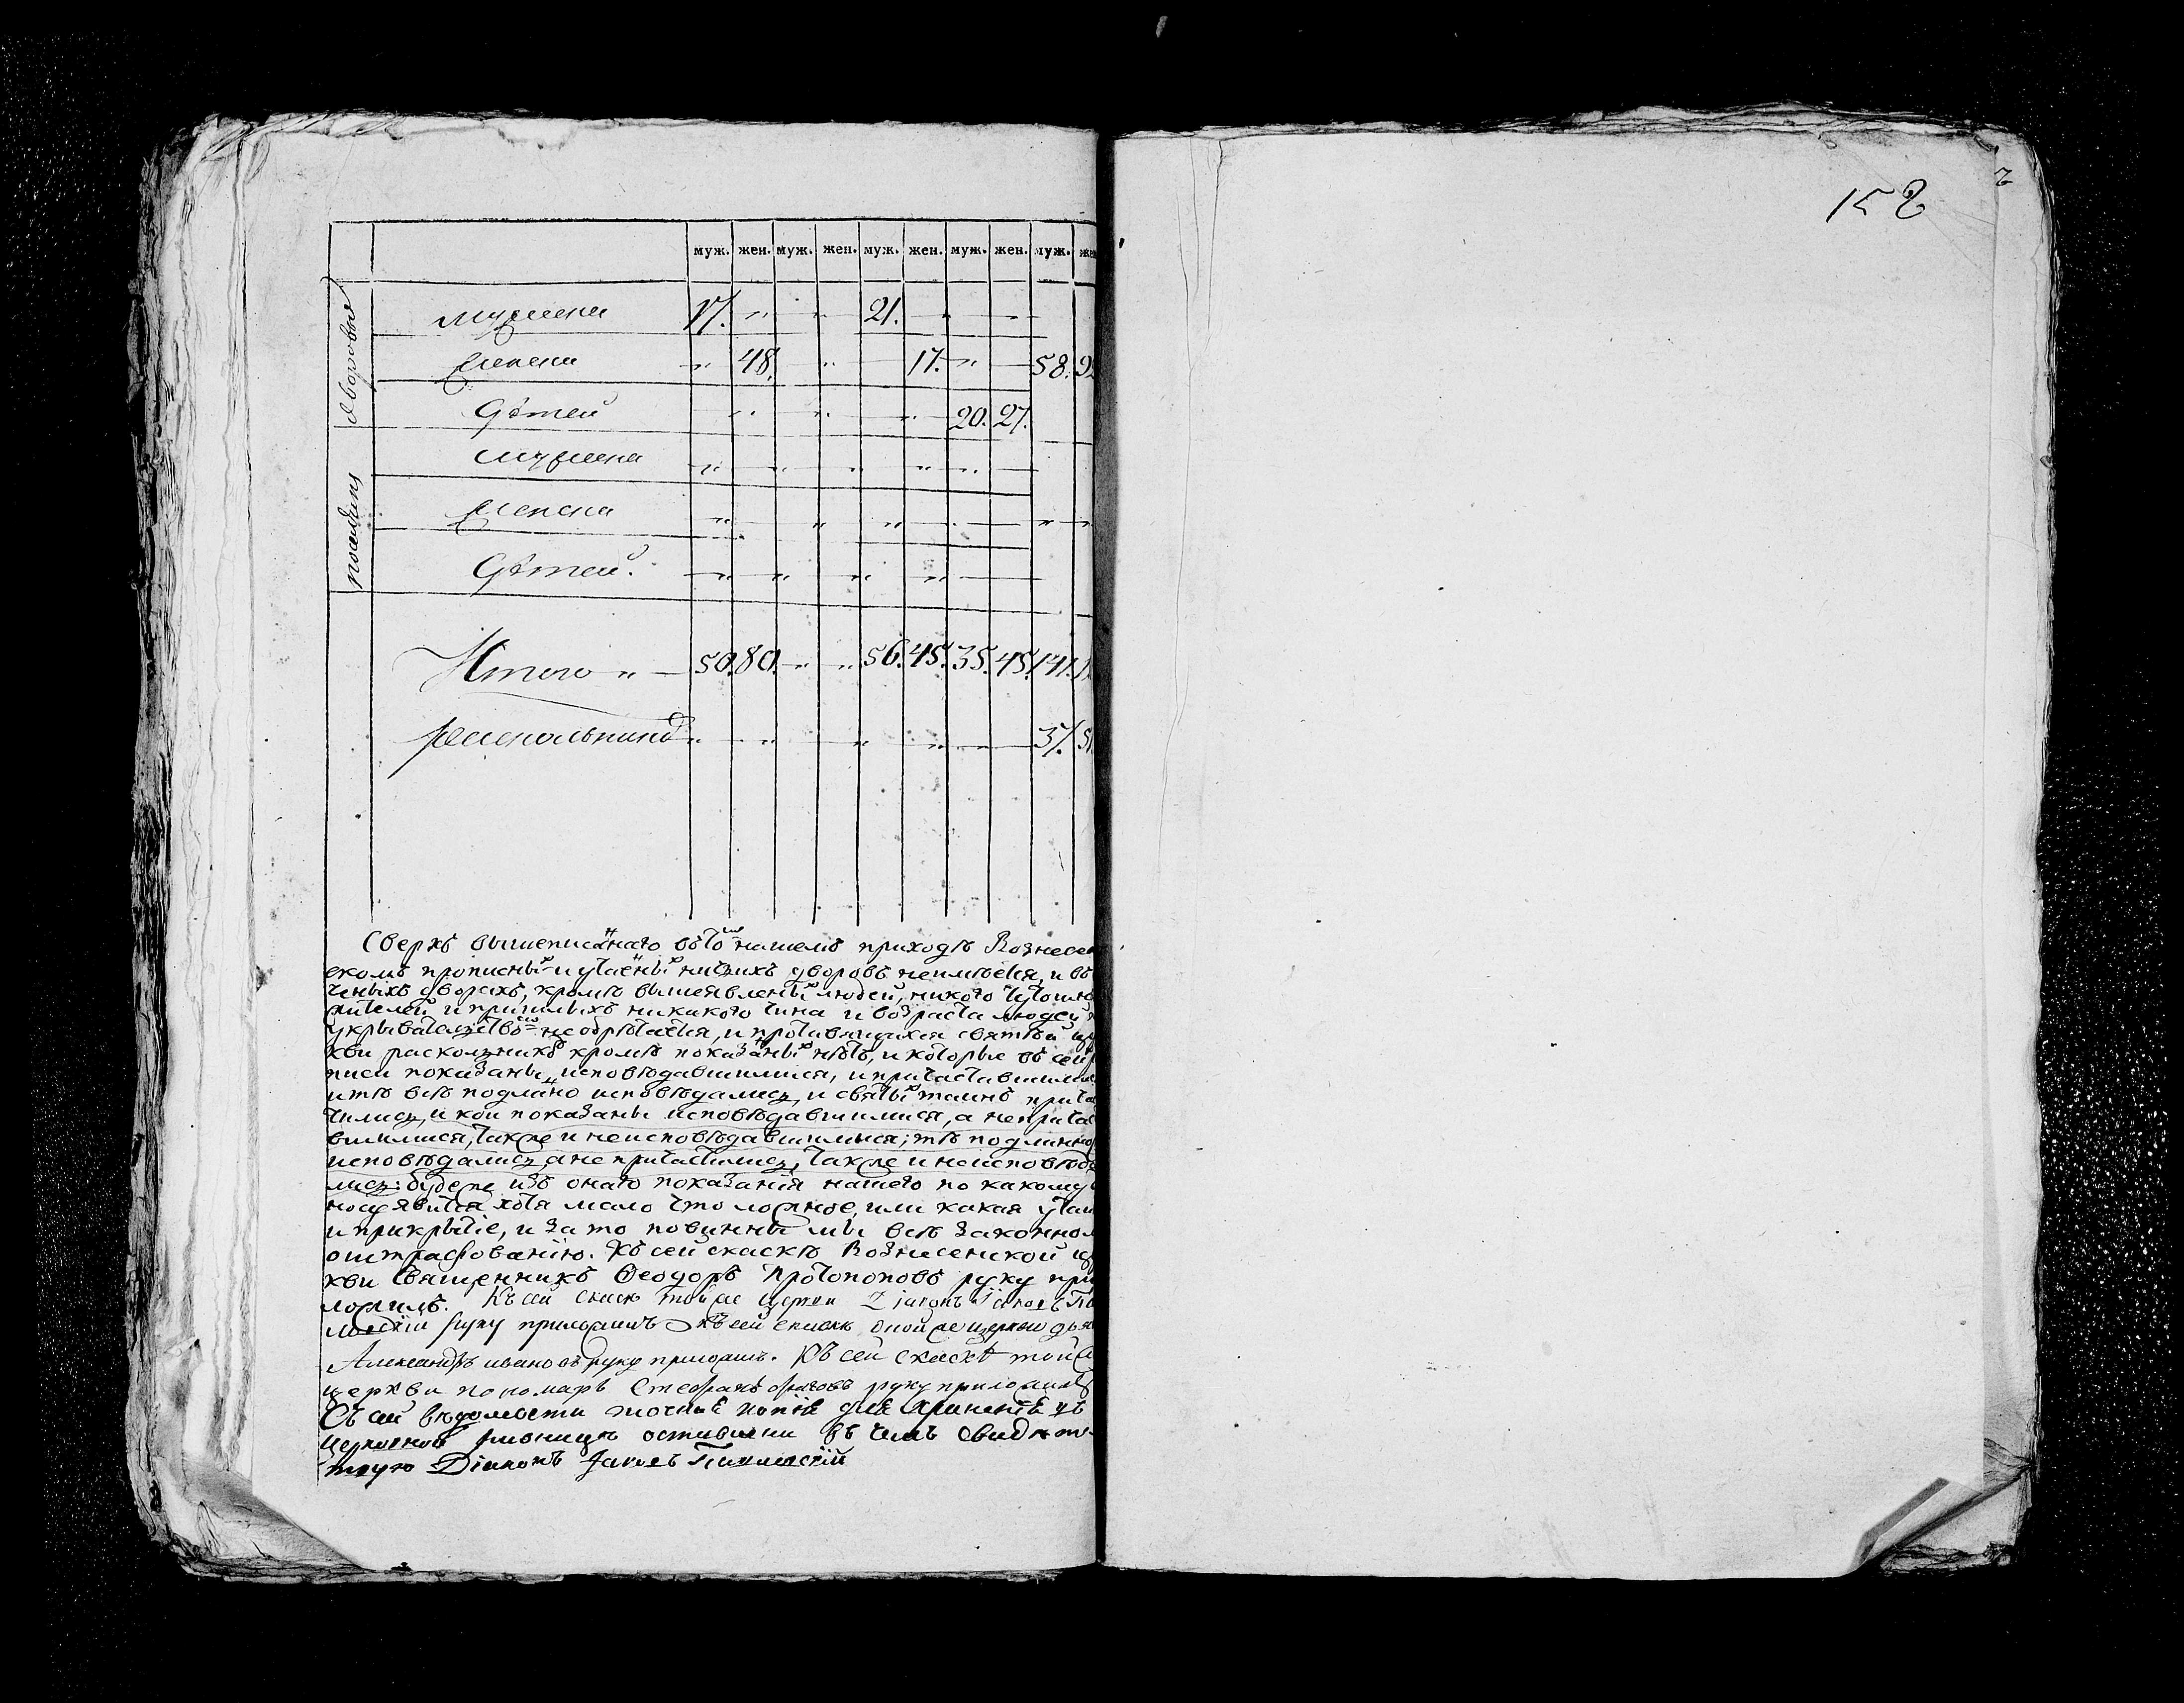 158
муж. жен. муж. жен. муж. жен. муж. жен. муж. жен
дворовые
мужеска 17. " " 21. " "
женска " 48. " 17. " 58. 92
Дѣтей " " " 20. 27.
мужеска " " " " "
женска " " " " "
Дѣтей. " " " "
Итого " 50. 80. " " 56. 45. 35. 45. 141.
раскольниковъ " " " " 37. 51
Сверхъ вышеписаннаго въ томъ нашемъ приходѣ Вознесен
скомъ прописныхъ и утаенныхъ ничьихъ дворовъ неимѣется, и въ
дворахъ, кромѣ вышеявленныхъ людей, никого
жителей и пришлыхъ никакого чина и возраста людей
укрывательствомъ необрѣтается, и противящихся святѣй цер
кви раскольниковъ кромѣ показанныхъ нѣтъ, и которые въ сей
писи показаны исповѣдавшимися, и причастившимися
и тѣ всѣ подлинно исповѣдались, и святыхъ таинъ прича
тились, и кои показаны исповѣдавшимися, а неприча
вшимися, также и неисповѣдавшимися; тѣ подлинно
исповѣдались, а не причастились, также и неисповѣда
лись: буде же изъ онаго показанія нашего по какому
явится хотя мало что ложное, или какая утай
и прикрытіе, и за то повинны мы всѣ законном
оштрафованію. Къ сей скаскѣ Вознесенской це
кви Священникъ Ѳеодоръ Протопоповъ руку при
ложилъ. Къ сей скаске той же церкви Діаконъ Іаковъ
руку приложилъ Къ сей скаскѣ оной же церкви дья
Александръ ивановъ руку приложилъ. Къ сей скаскѣ той
церкви пономарь Стефанъ руку приложилъ
Съ сей вѣдомости точная копія для храненія въ
церковной ризницѣ оставлена въ чемъ свидѣте
твую Діаконъ Іаковъ